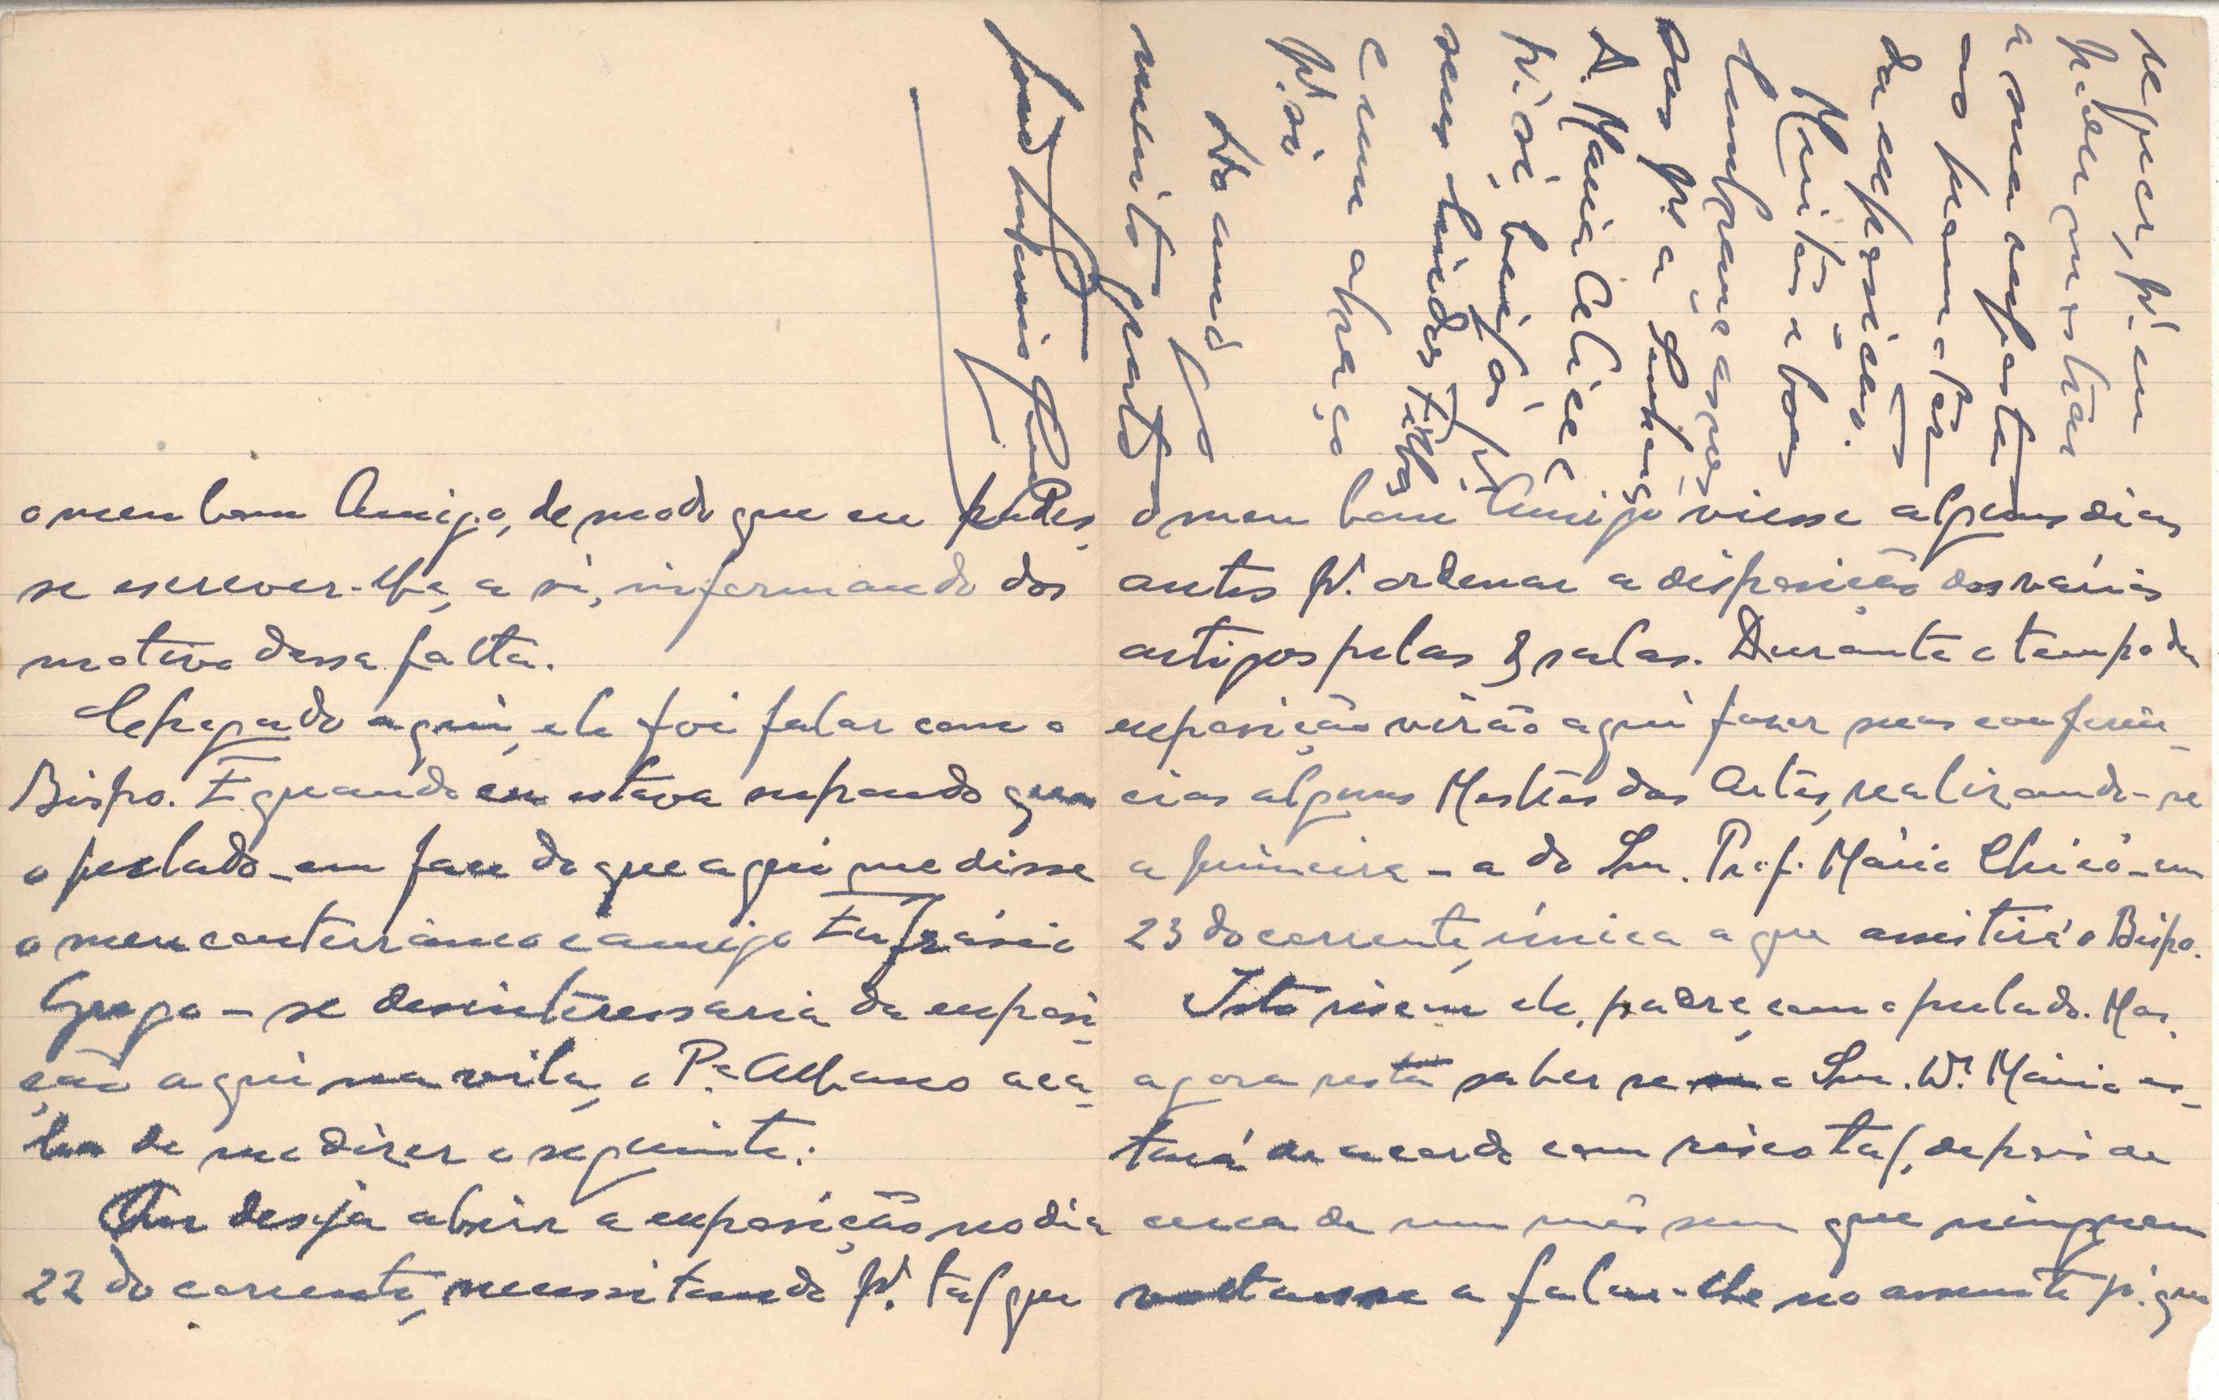 o meu bom Amigo, de modo que eu pudes-
se escrever-lhe, a si, informando dos
motivo dessa falta.
Chegado aqui, ele foi falar com o
Bispo. E quando eu estava supondo que
o prelado - em face do que aqui me disse
o meu conterrâneo e amigo Eufrásio
- se desinteressaria da exposi-
ção aqui na vila, o P.e Albano aca-
ba de me dizer o seguinte:
Que deseja abrir a exposição no dia
22 do corrente, necessitando p.ª tal que
o meu bom Amigo viesse alguns dias
antes p.ª ordenar a disposição dos vários
artigos pelas 3 salas. Durante o tempo da
exposição virão aqui fazer suas conferên-
cias alguns Mestres das Artes, realizando-se
a primeira - a do Snr. Prof. Mário Chicó - em
23 do corrente, única a que assistirá o Bispo.
Isto ele, padre, com o prelado. Mas,
agora resta saber se o Snr. Dr. Mário es-
tará de acordo com isso tal, depois de
cerca de um mês sem que ninguem
voltasse a falar-lhe no assunto p.ª que
se quer, p.ª eu
a sua resposta
da exposição.
Muitas e boas
lembranças nos-
sas p.ª a Senhora
D. Maria Alice e
p.ª si, beijos p.ª
seus lindos Filhos
e um abraço
p.ª si
do amigo
muito grato
José António